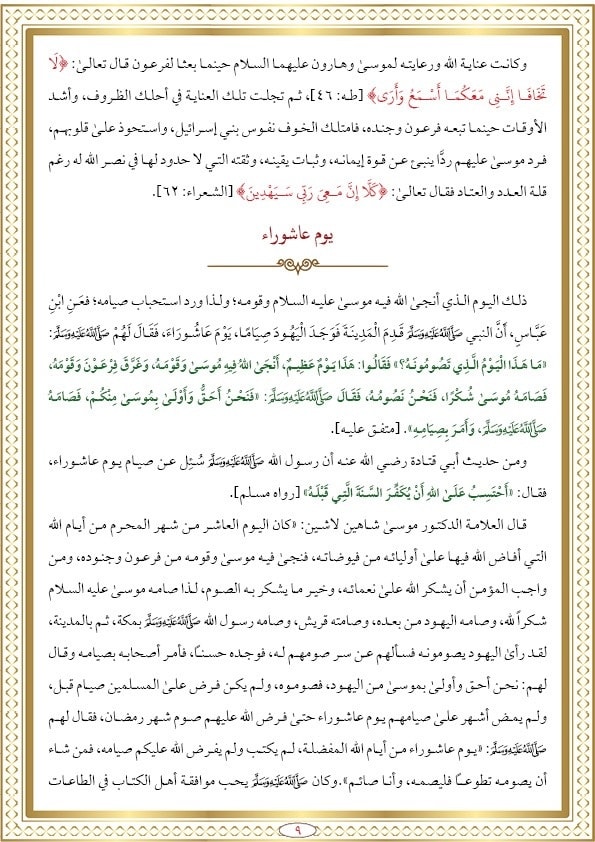 وكانت عناية الله ورعايته لموسىٰ وهارون عليهما السلام حينما بعثا لفرعون قال تعالىٰ: ﴿لَا
تَخَافَا إِنَّنِي مَعَكُمَا أَسْمَعُ وَأَرَى﴾ [طه: ٤٦]، ثم تجلت تلك العناية في أحلك الظروف، وأشد
الأوقات حينما تبعه فرعون وجنده، فامتلك الخوف نفوس بني إسرائيل، واستحوذ علىٰ قلوبهم،
فرد موسىٰ عليهم ردًّا ينبئ عن قوة إيمانه، وثبات يقينه، وثقته التي لا حدود لها في نصر الله له رغم
قلة العدد والعتاد فقال تعالىٰ: ﴿كَلَّا إِنَّ مَعِيَ رَبِّي سَيَهْدِينَ﴾ [الشعراء: ٦٢].
يوم عاشوراء
ذلك اليوم الذي أنجىٰ الله فيه موسىٰ عليه السلام وقومه؛ ولذا ورد استحباب صيامه؛ فعَنِ ابْنِ
عَبَّاسٍ، أَنَّ النبي ﷺ قَدِمَ الْمَدِينَةَ فَوَجَدَ الْيَهُودَ صِيَامًا، يَوْمَ عَاشُورَاءَ، فَقَالَ لَهُمْ ﷺ:
«مَا هَذَا الْيَوْمُ الَّذِي تَصُومُونَهُ؟» فَقَالُوا: هَذَا يَوْمٌ عَظِيمٌ، أَنْجَىٰ اللهُ فِيهِ مُوسَىٰ وَقَوْمَهُ، وَغَرَّقَ فِرْعَوْنَ وَقَوْمَهُ،
فَصَامَهُ مُوسَىٰ شُكْرًا، فَنَحْنُ نَصُومُهُ، فَقَالَ ﷺ: «فَنَحْنُ أَحَقُّ وَأَوْلَىٰ بِمُوسَىٰ مِنْكُمْ، فَصَامَهُ
ﷺ، وَأَمَرَ بِصِيَامِهِ». [متفق عليه].
ومن حديث أبي قتادة رضي الله عنه أن رسول الله ﷺ سُئِل عن صيام يوم عاشوراء،
فقال: «أَحْتَسِبُ عَلَىٰ اللهِ أَنْ يُكَفِّرَ السَّنَةَ الَّتِي قَبْلَهُ» [رواه مسلم].
قال العلامة الدكتور موسىٰ شاهين لاشين: «كان اليوم العاشر من شهر المحرم من أيام الله
التي أفاض الله فيها علىٰ أوليائه من فيوضاته، فنجىٰ فيه موسىٰ وقومه من فرعون وجنوده، ومن
واجب المؤمن أن يشكر الله علىٰ نعمائه، وخير ما يشكر به الصوم، لذا صامه موسىٰ عليه السلام
شكراً لله، وصامه اليهود من بعده، وصامته قريش، وصامه رسول الله ﷺ بمكة، ثم بالمدينة،
لقد رأىٰ اليهود يصومونه فسألهم عن سر صومهم له، فوجده حسنًا، فأمر أصحابه بصيامه وقال
لهم: نحن أحق وأولىٰ بموسىٰ من اليهود، فصوموه، ولم يكن فرض علىٰ المسلمين صيام قبل،
ولم يمض أشهر علىٰ صيامهم يوم عاشوراء حتىٰ فرض الله عليهم صوم شهر رمضان، فقال لهم
ﷺ: «يوم عاشوراء من أيام الله المفضلة، لم يكتب ولم يفرض الله عليكم صيامه، فمن شاء
أن يصومه تطوعًا فليصمه، وأنا صائم».وكان ﷺ يحب موافقة أهل الكتاب في الطاعات
٩